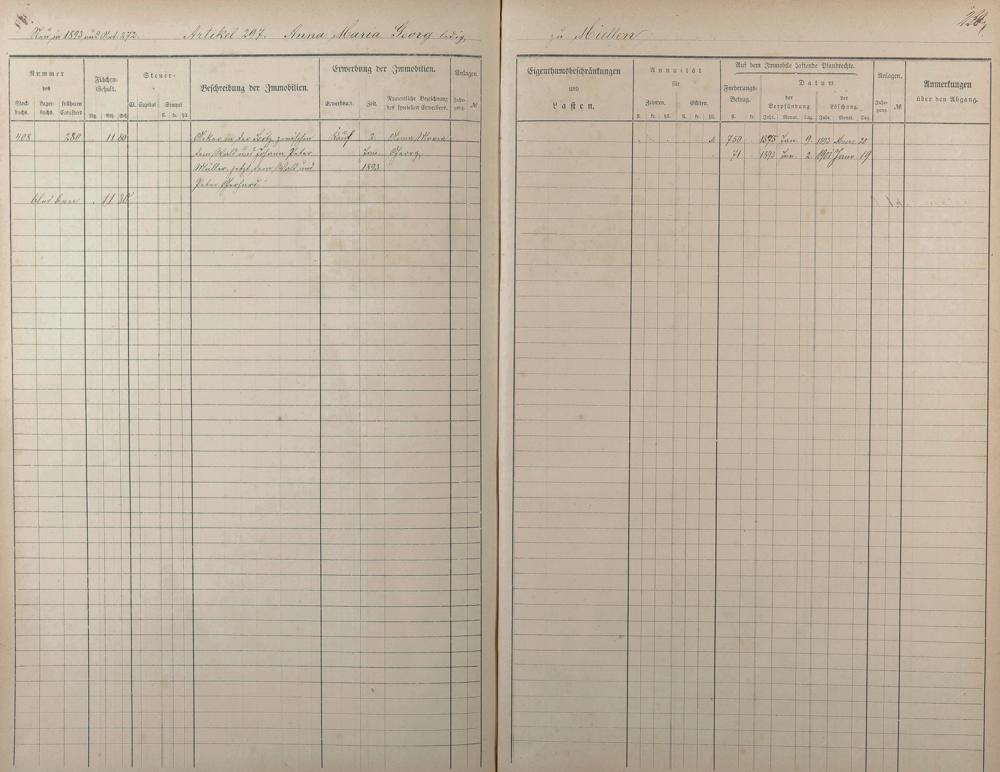 Neu in 1893 aus Art. 272.
Artikel 297. Anna Maria Georg ledig,
zu Miellen
Nummer
des
Stockbuchs.
Lagerbuchs.
früheren Catasters
Flächen-Gehalt.
Mg. Rth. Sch.
Steuer-
Cl. Capital
Simpel
fl. kr. hll.
Beschreibung der Immobilien.
Erwerbung der Immobilien.
Erwerbsart.
Zeit.
Namentliche Bezeichnung des speciellen Erwerbers.
Anlagen.
Jahrgang. №
Eigenthumsbeschränkungen
und
Lasten.
Annuität
für
Zehnten.
Gülten.
fl. kr. hll. fl. kr. hll.
Auf dem Immobile haftende Pfandrechte.
Forderungs-Betrag.
fl. kr.
Datum
der Verpfändung
Jahr. Monat. Tag.
der Löschung.
Jahr. Monat. Tag.
Anlagen.
Jahrgang. №
Anmerkungen
über den Abgang.
408 280 11 80
Acker in der zwischen
dem Wald und Johann Peter
Müller, jetzt dem Wald und
Peter Gerhard
Kauf 2. Jan. 1893
Anna Maria
Georg
750 1893 Jan. 9. 1893 März 22
71 1893 Jan. 2. 1901 Janr. 19
11 80